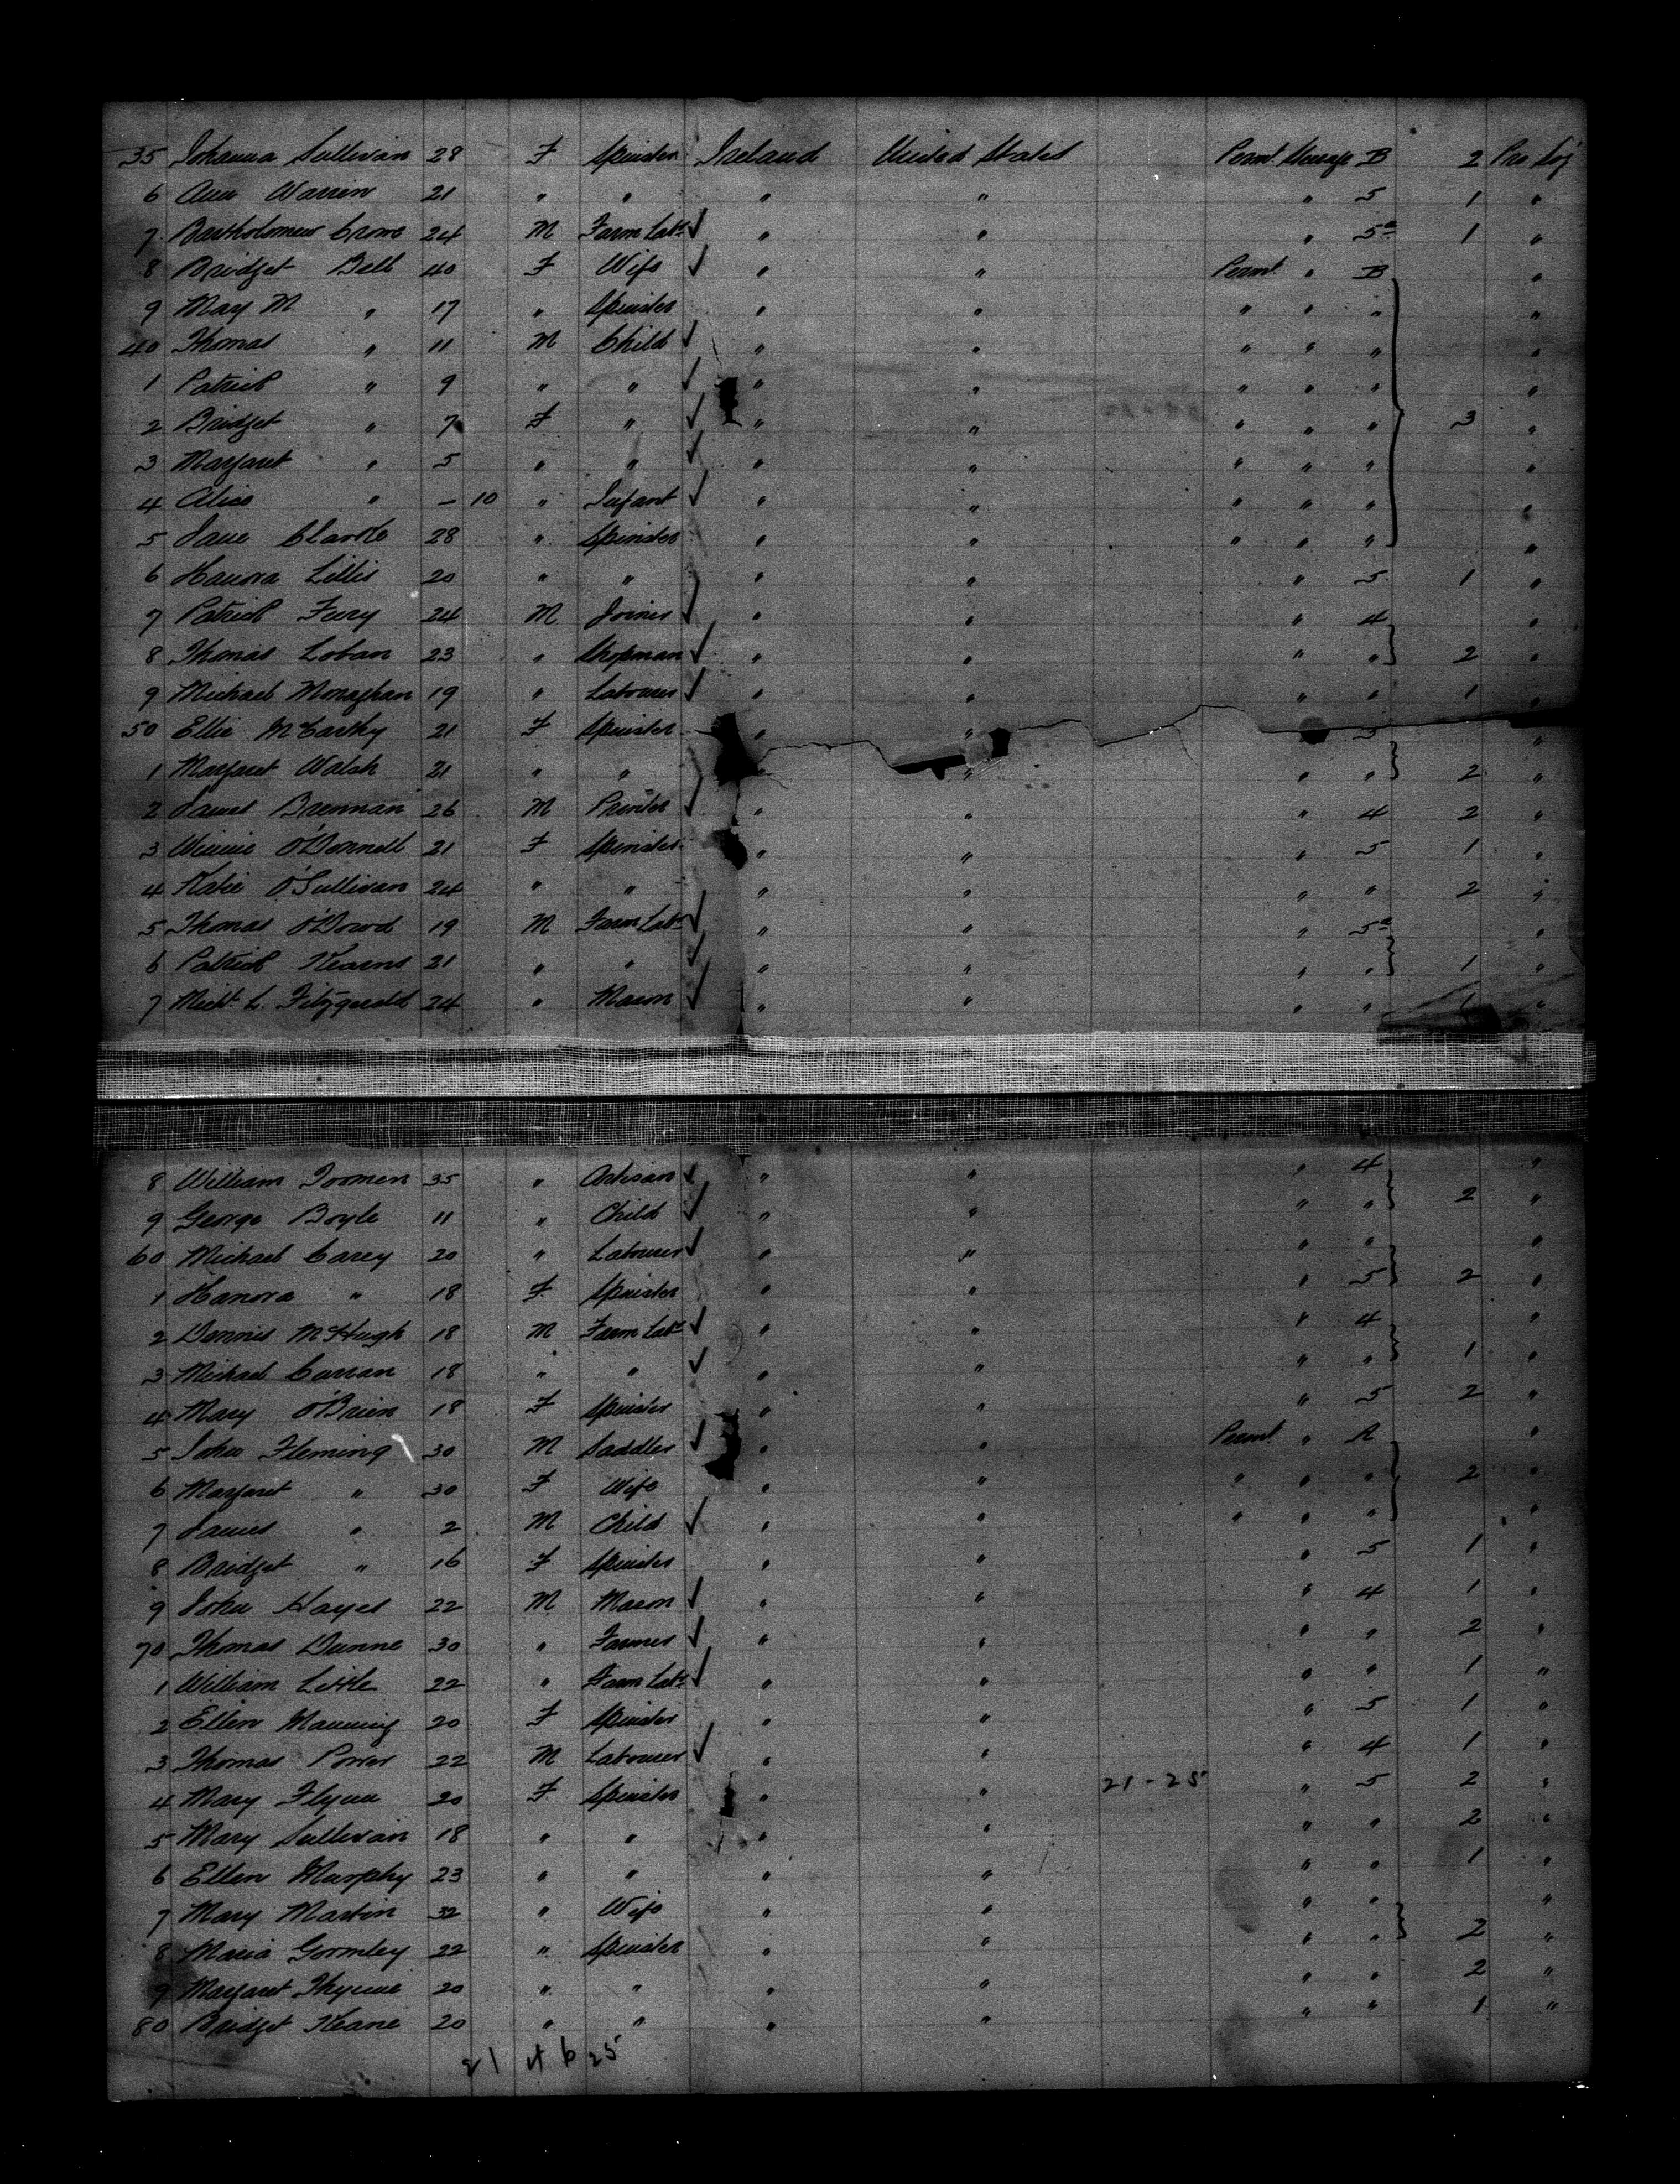 35 Johanna Sullivan 28 F Spinster Ireland United States Permt Steerage B 2 Pro Soj
6 Ann Warren 21 " " " " " 5 1 "
7 Bartholomew Crowe 24 M Farm Labr ✓ " " " 5a 1 "
8 Bridget Bell 40 F Wife ✓ " " Permt " B "
9 May M " 17 " Spinster " " " " " "
40 Thomas " 11 M Child ✓ " " " " " "
1 Patrick " 9 " " ✓ " " " " " "
2 Bridget " 7 F " ✓ " " " " " 3 "
3 Margaret " 5 " " ✓ " " " " " "
4 Alice " – 10 " Infant ✓ " " " " " "
5 Jane Clarke 28 " Spinster " " " " " "
6 Hanora Lillis 20 " " " " " 5 1 "
7 Patrick Fury 24 M Joiner ✓ " " " 4 "
8 Thomas Loban 23 " Shopman ✓ " " " " 2 "
9 Michael Monaghan 19 " Labourer ✓ " " " " 1 "
50 Ellie McCarthy 21 F Spinster " " 5 "
1 Margaret Walsh 21 " " " " " " 2 "
2 James Brennan 26 M Printer ✓ " " " 4 2 "
3 Winnie O'Donnell 21 F Spinster " " " 5 1 "
4 Katie O'Sullivan 24 " " " " " " 2 "
5 Thomas O'Dowd 19 M Farm Labr ✓ " " " 5a "
6 Patrick Kearns 21 " " ✓ " " " " 1 "
7 Michl. L. Fitzgerald 24 " Mason ✓ " " " " 1 "
8 William Toomen 35 " Artisan ✓ " " " 4 "
9 George Boyle 11 " Child ✓ " " " " 2 "
60 Michael Carey 20 " Labourer ✓ " " " " "
1 Hanora " 18 F Spinster " " " 5 2 "
2 Dennis McHugh 18 M Farm Labr ✓ " " " 4 "
3 Michael Curran 18 " " ✓ " " " " 1 "
4 Mary O'Brien 18 F Spinster " " " 5 2 "
5 John Fleming 30 M Saddler ✓ " " Permt " A "
6 Margaret " 30 F Wife " " " " " 2 "
7 James " 2 M Child ✓ " " " " " "
8 Bridget " 16 F Spinster " " " 5 1 "
9 John Hayes 22 M Mason ✓ " " " 4 1 "
70 Thomas Dunne 30 " Farmer ✓ " " " " 2 "
1 William Little 22 " Farm Labr ✓ " " " " 1 "
2 Ellen Manning 20 F Spinster " " " 5 1 "
3 Thomas Power 22 M Labourer ✓ " " " 4 1 "
4 Mary Flynn 20 F Spinster " " 21-25 " 5 2 "
5 Mary Sullivan 18 " " " " " " 2 "
6 Ellen Murphy 23 " " " " " " 1 "
7 Mary Martin 32 " Wife " " " " "
8 Maria Gormley 22 " Spinster " " " " 2 "
9 Margaret Thynne 20 " " " " " " 2 "
80 Bridget Keane 20 " " " " " " 1 "
21 4 6 25